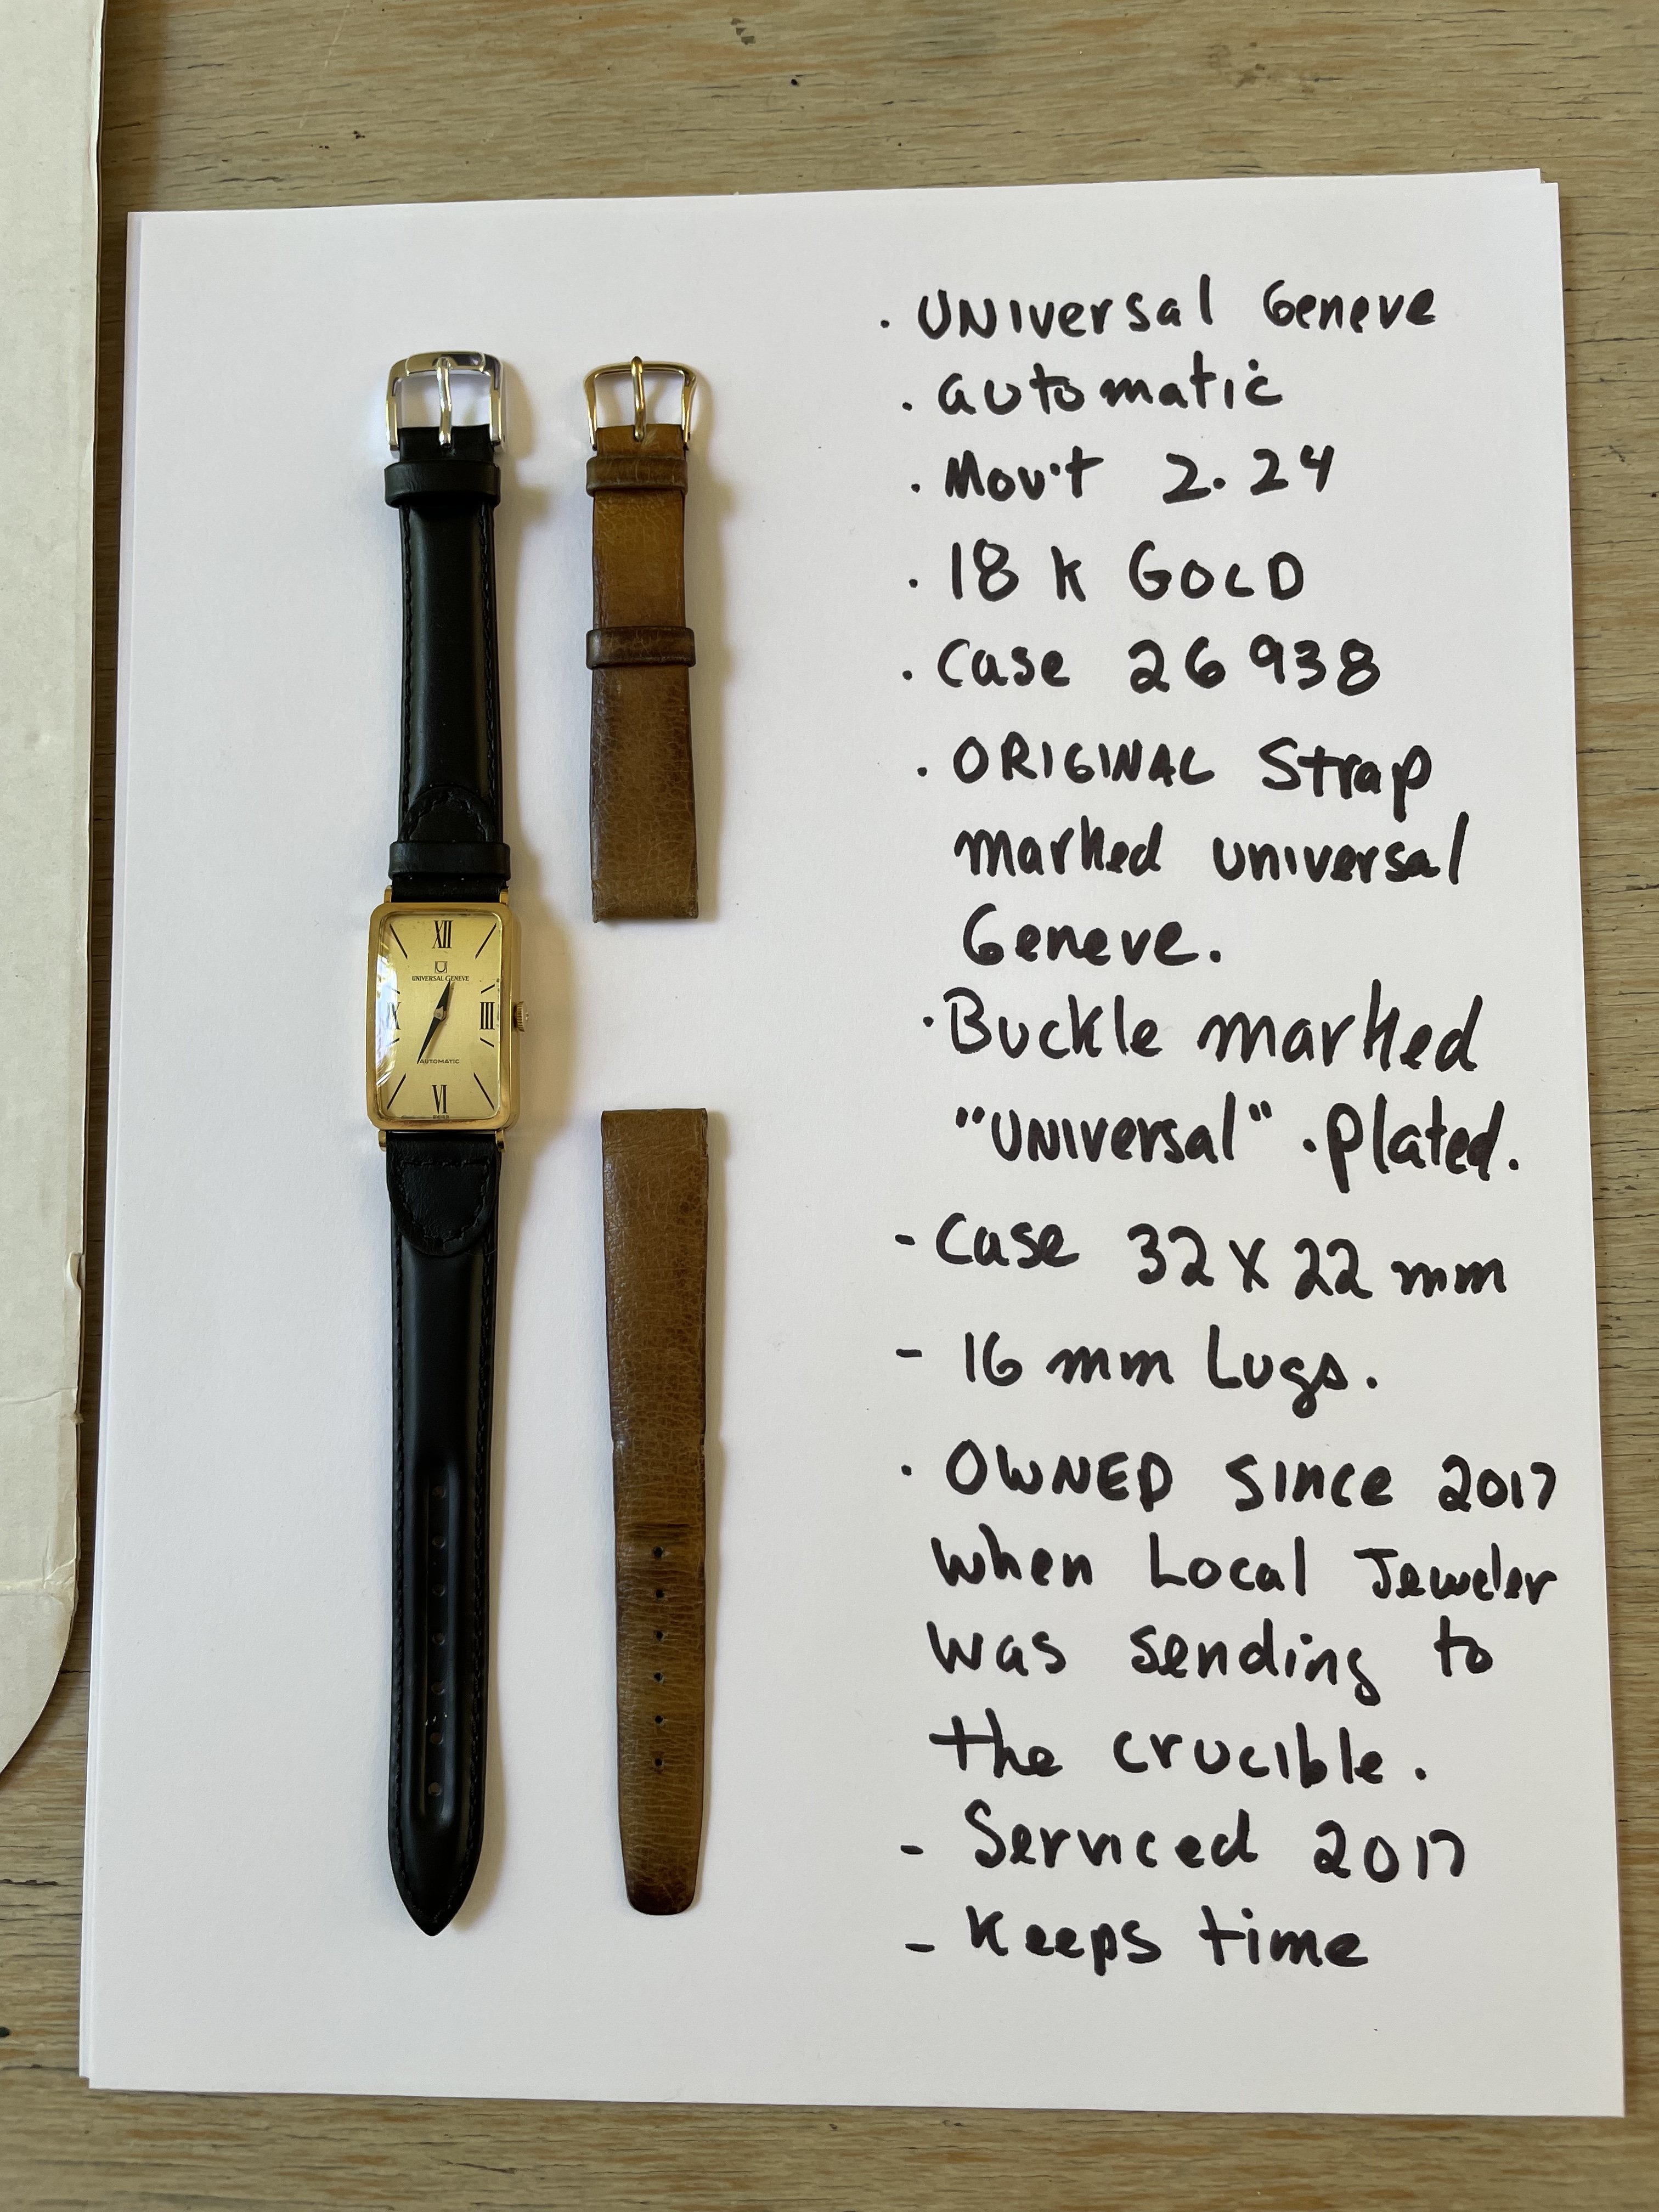 XII
UNIVERSAL GENEVE
X III
AUTOMATIC
VI
· UNIversal Geneve
· automatic
· Mov't 2.24
· 18 K GOLD
· Case 26938
· ORIGINAL Strap
marked universal
Geneve.
· Buckle marked
"UNIversal" · plated.
- Case 32 X 22 mm
- 16 mm Lugs.
· OWNED SINCE 2017
when Local Jeweler
was sending to
the crucible.
- Serviced 2017
- Keeps time